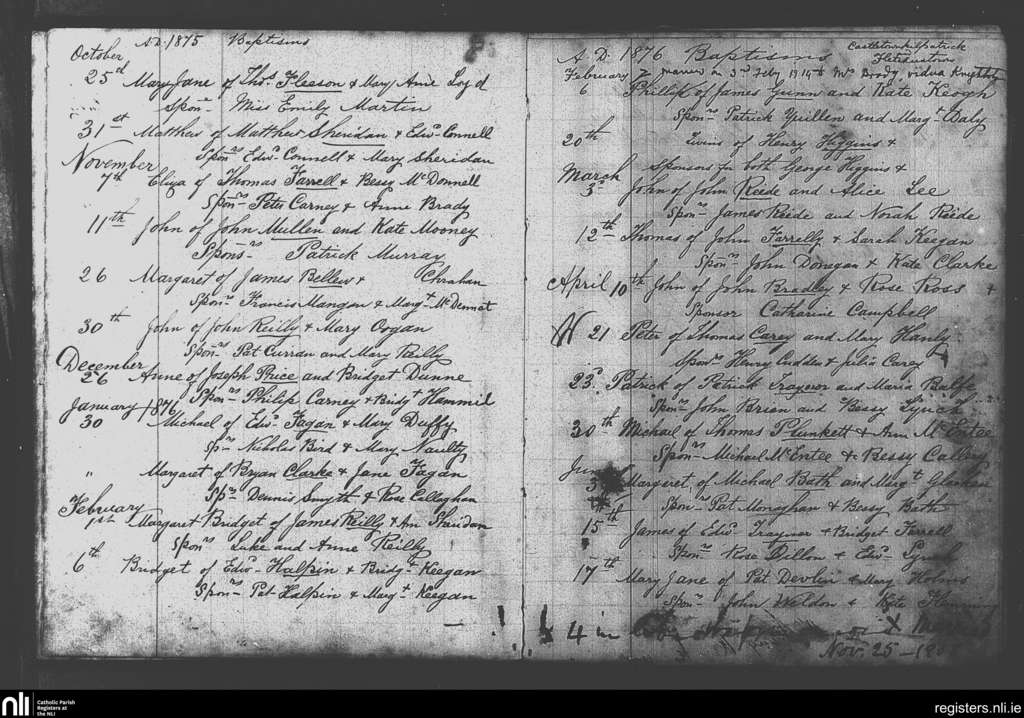 October A.D. 1875 Baptisms
25th Mary Jane of Thos. Gleeson & Mary Anne Loyd
Spon. Miss Emily Martin
31st Matthew of Matthew Sheridan & Edwd. Connell
Sponrs Edwd. Connell & Mary Sheridan
November
7th Eliza of Thomas Farrell & Bessy McDonnell
Sponrs Peter Carney & Anne Brady
11th John of John Mullen and Kate Mooney
Spons. Patrick Murray
26 Margaret of James Bellew &
Sponrs Francis Mangan & Margt. McDermot
30th John of John Reilly & Mary
Sponrs Pat Curran and Mary Reilly
December
26 Anne of Joseph Price and Bridget Dunne
Sponrs Philip Carney & Bridgt Hammil
January 1876
30 Michael of Edwd. Fagan & Mary Duffy
Sprs Nicholas Bird & Mary Naulty
" Margaret of Bryan Clarke & Jane Fagan
Sprs Dennis Smyth & Rose Callaghan
February
1st Margaret Bridget of James Reilly & An Sheridan
Sponrs Luke and Anne Reilly
6th Bridget of Edwd. Halpin & Bridgt Keegan
Sponrs Pat Halpin & Margt. Keegan
A.D. 1876 Baptisms Castletownkilpatrick
Fletcherstown
February 7 married on 3rd Feby Brody vidua
6 Phillip of James Gunn and Kate Keogh
Sponrs Patrick Quillen and Margt. Daly
20th Twins of Henry Higgins &
Sponsors for both George Higgins &
March
3d John of John Reide and Alice Lee
Sponrs James Reide and Norah Reide
12th Thomas of John Farrelly & Sarah Keegan
Sponrs John Donagan & Kate Clarke
April 10th John of John Bradley & Rose Ross &
Sponsor Catharine Campbell
21 Peter of Thomas Carey and Mary Hanly
Sponrs Henry Cadden & Julia Carey
23d Patrick of Patrick Traynor and Maria Balfe
Sponrs John Brien and Bessy Lynch
30th Michael of Thomas Plunkett & Ann McEntee
Sponrs Michael McEntee & Bessy
June
3 Margaret of Michael Bath and Margt
Sponrs Pat Monaghan & Bessy Bath
15th James of Edwd. Traynor & Bridget Farrell
Sponrs Rose Dillon & Edwd. Lynch
17th Mary Jane of Pat Devlin & Mary Holms
Sponrs John Weldon & Kate
4 in X
Nov. 25
nli Catholic Parish
Registers at
the NLI
registers.nli.ie